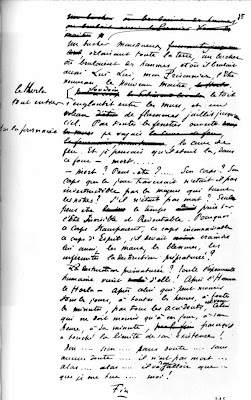 un bûcher monstrueux
éclairant toute la terre, un bûcher
où brûlaient les hommes, et où il brûlait
aussi Lui, Lui, mon Prisonnier, l'Etre
nouveau, le nouveau Maître, le Horla
Soudain le toit
le Horla
tout entier s'engloutit entre les murs, et un
volcan de flammes jaillit jusqu'au
ciel. Par toutes les fenêtres ouvertes
sur la fournaise je voyais la cuve de
feu et je pensais qu'il était là, dans
ce four - mort....
- Mort ? Peut-être ?... Son corps ? Son
corps que le jour traversait n'était-il pas
indestructible par les moyens qui tuent
les nôtres ? S'il n'était pas mort ? Seul
peut-être le temps a prise sur
l'Etre Invisible et Redoutable. Pourquoi
ce corps transparent, ce corps inconnaissable
ce corps d'Esprit, s'il devait craindre
lui aussi, les maux, les blessures, les
infirmités, la destruction prématurée ?
La destruction prématurée ? Toute l'épouvante
humaine vient d'elle ! Après l'Homme
le Horla - Après celui qui peut mourir
tous les jours, à toutes les heures, à toutes
les minutes, par tous les accidents, celui
qui ne doit mourir qu'à son jour, à son
heure, à sa minute, parce qu'il
a touché la limite de son existence !
Non - non... sans doute... sans
aucun doute.... il n'est pas mort...
alors... alors... il va falloir que
que je me tue... moi !
Fin